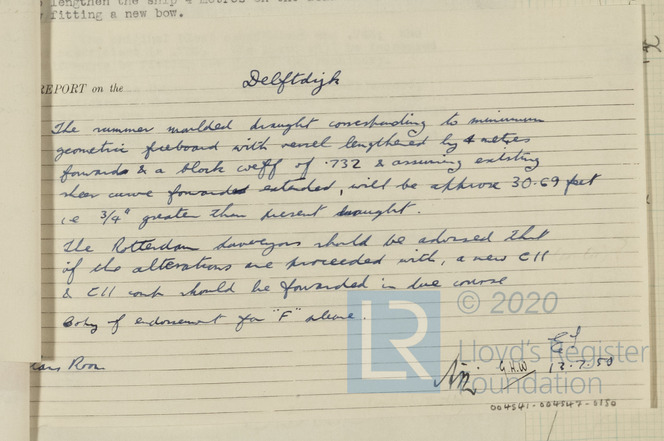 lengthen the ship 4 metres on the
fitting a new bow.
REPORT on the Delftdijk
The summer moulded draught corresponding to minimum
geometric freeboard with vessel lengthened by 4 metres
forward & a block coeff of .732 & assuming existing
sheer curve forward extended, will be approx 30.69 feet
i.e 3/4" greater than present draught.
The Rotterdam Surveyors should be advised that
if the alterations are proceeded with, a new C11
& C11 comp should be forwarded in due course
Copy of endorsement for "F" please.
Room
LR © 2020
Lloyd's Register
Foundation
G.H.W
13.7.50
004541-004547-0150